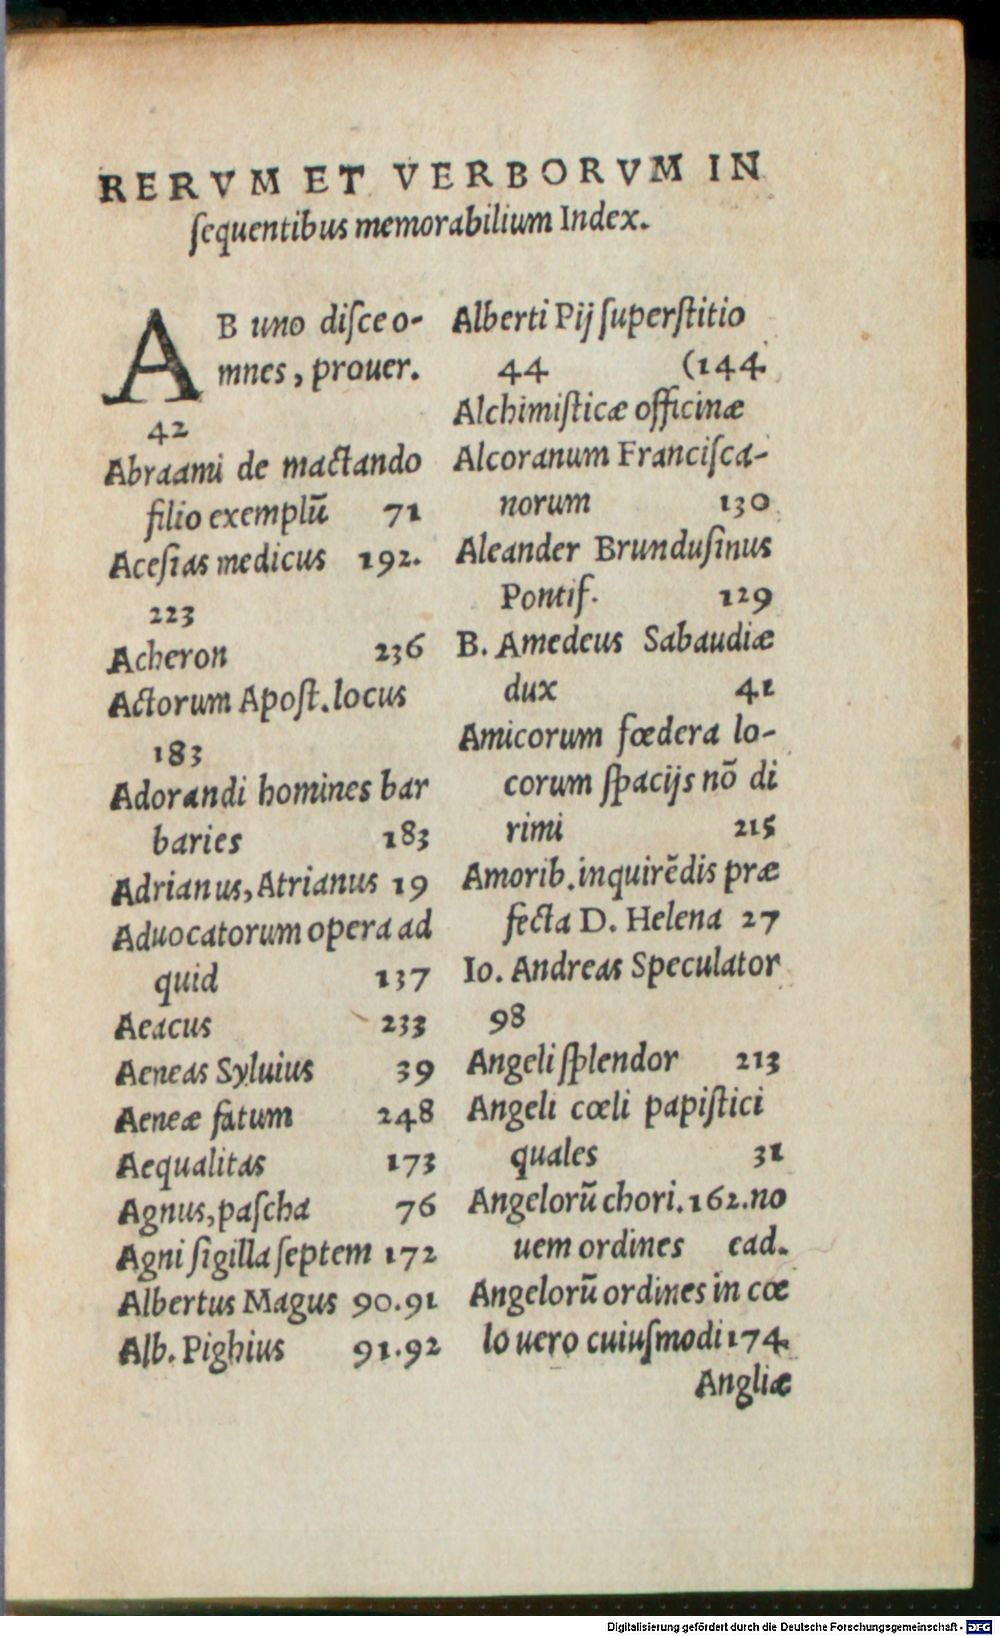 RERVM ET VERBORVM IN
ſequentibus memorabilium Index.
AB uno diſce o-
mnes, prouer.
42
Abraami de mactando
filio exemplū 71
Aceſias medicus 192.
223
Acheron 236
Actorum Apoſt. locus
183
Adorandi homines bar
baries 183
Adrianus, Atrianus 19
Aduocatorum opera ad
quid 137
Aeacus 233
Aeneas Syluius 39
Aeneæ fatum 248
Aequalitas 173
Agnus, paſcha 76
Agni ſigilla ſeptem 172
Albertus Magus 90.91
Alb. Pighius 91.92
Alberti Pij ſuperſtitio
44 (144.
Alchimiſticæ officinæ
Alcoranum Franciſca-
norum 130
Aleander Brunduſinus
Pontif. 129
B. Amedeus Sabaudiæ
dux 41
Amicorum fœdera lo-
corum ſpacijs nō di
rimi 215
Amorib. inquirēdis præ
fecta D. Helena 27
Io. Andreas Speculator
98
Angeli ſplendor 213
Angeli cœli papiſtici
quales 31
Angelorū chori. 162. no
uem ordines ead.
Angelorū ordines in cœ
lo uero cuiuſmodi 174.
Angliæ
Digitalisierung gefördert durch die Deutsche Forschungsgemeinschaft - DFG